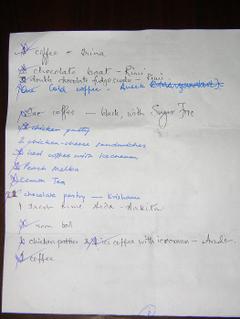 coffee - Irina
chocolate boat - Rimi
double chocolate fudge sundae - Rimi
One Cold coffee -
One coffee — black, with Sugar Free
chicken patty
2 chicken-cheese sandwiches
Iced coffee with icecream
Peach Melba
Lemon Tea
chocolate pastry — Krishanu
1 fresh lime soda - Ankita
rum ball
chicken patties & ice coffee with icecream -
coffee